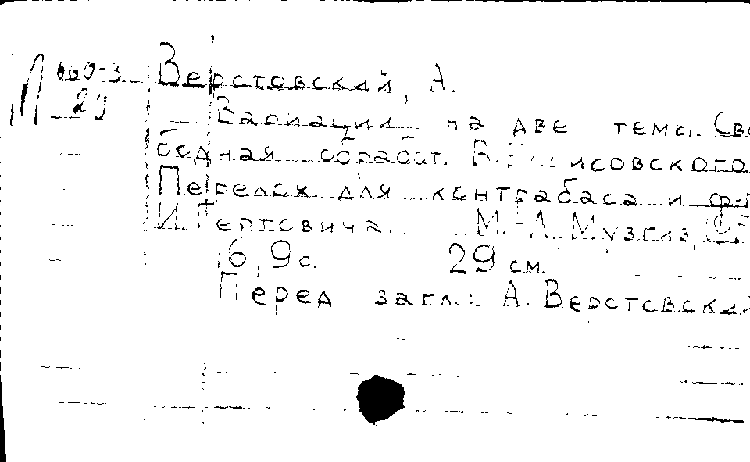 М 660-3 Верстовский, А.
29 Вариации на две темы. Сво
бодная обработ. В. Борисовского
Перелож. для контрабаса и ф-п
И. Гертовича. М.-Л. Музгиз, 195
6, 9 с. 29 см.
Перед загл.: А. Верстовский